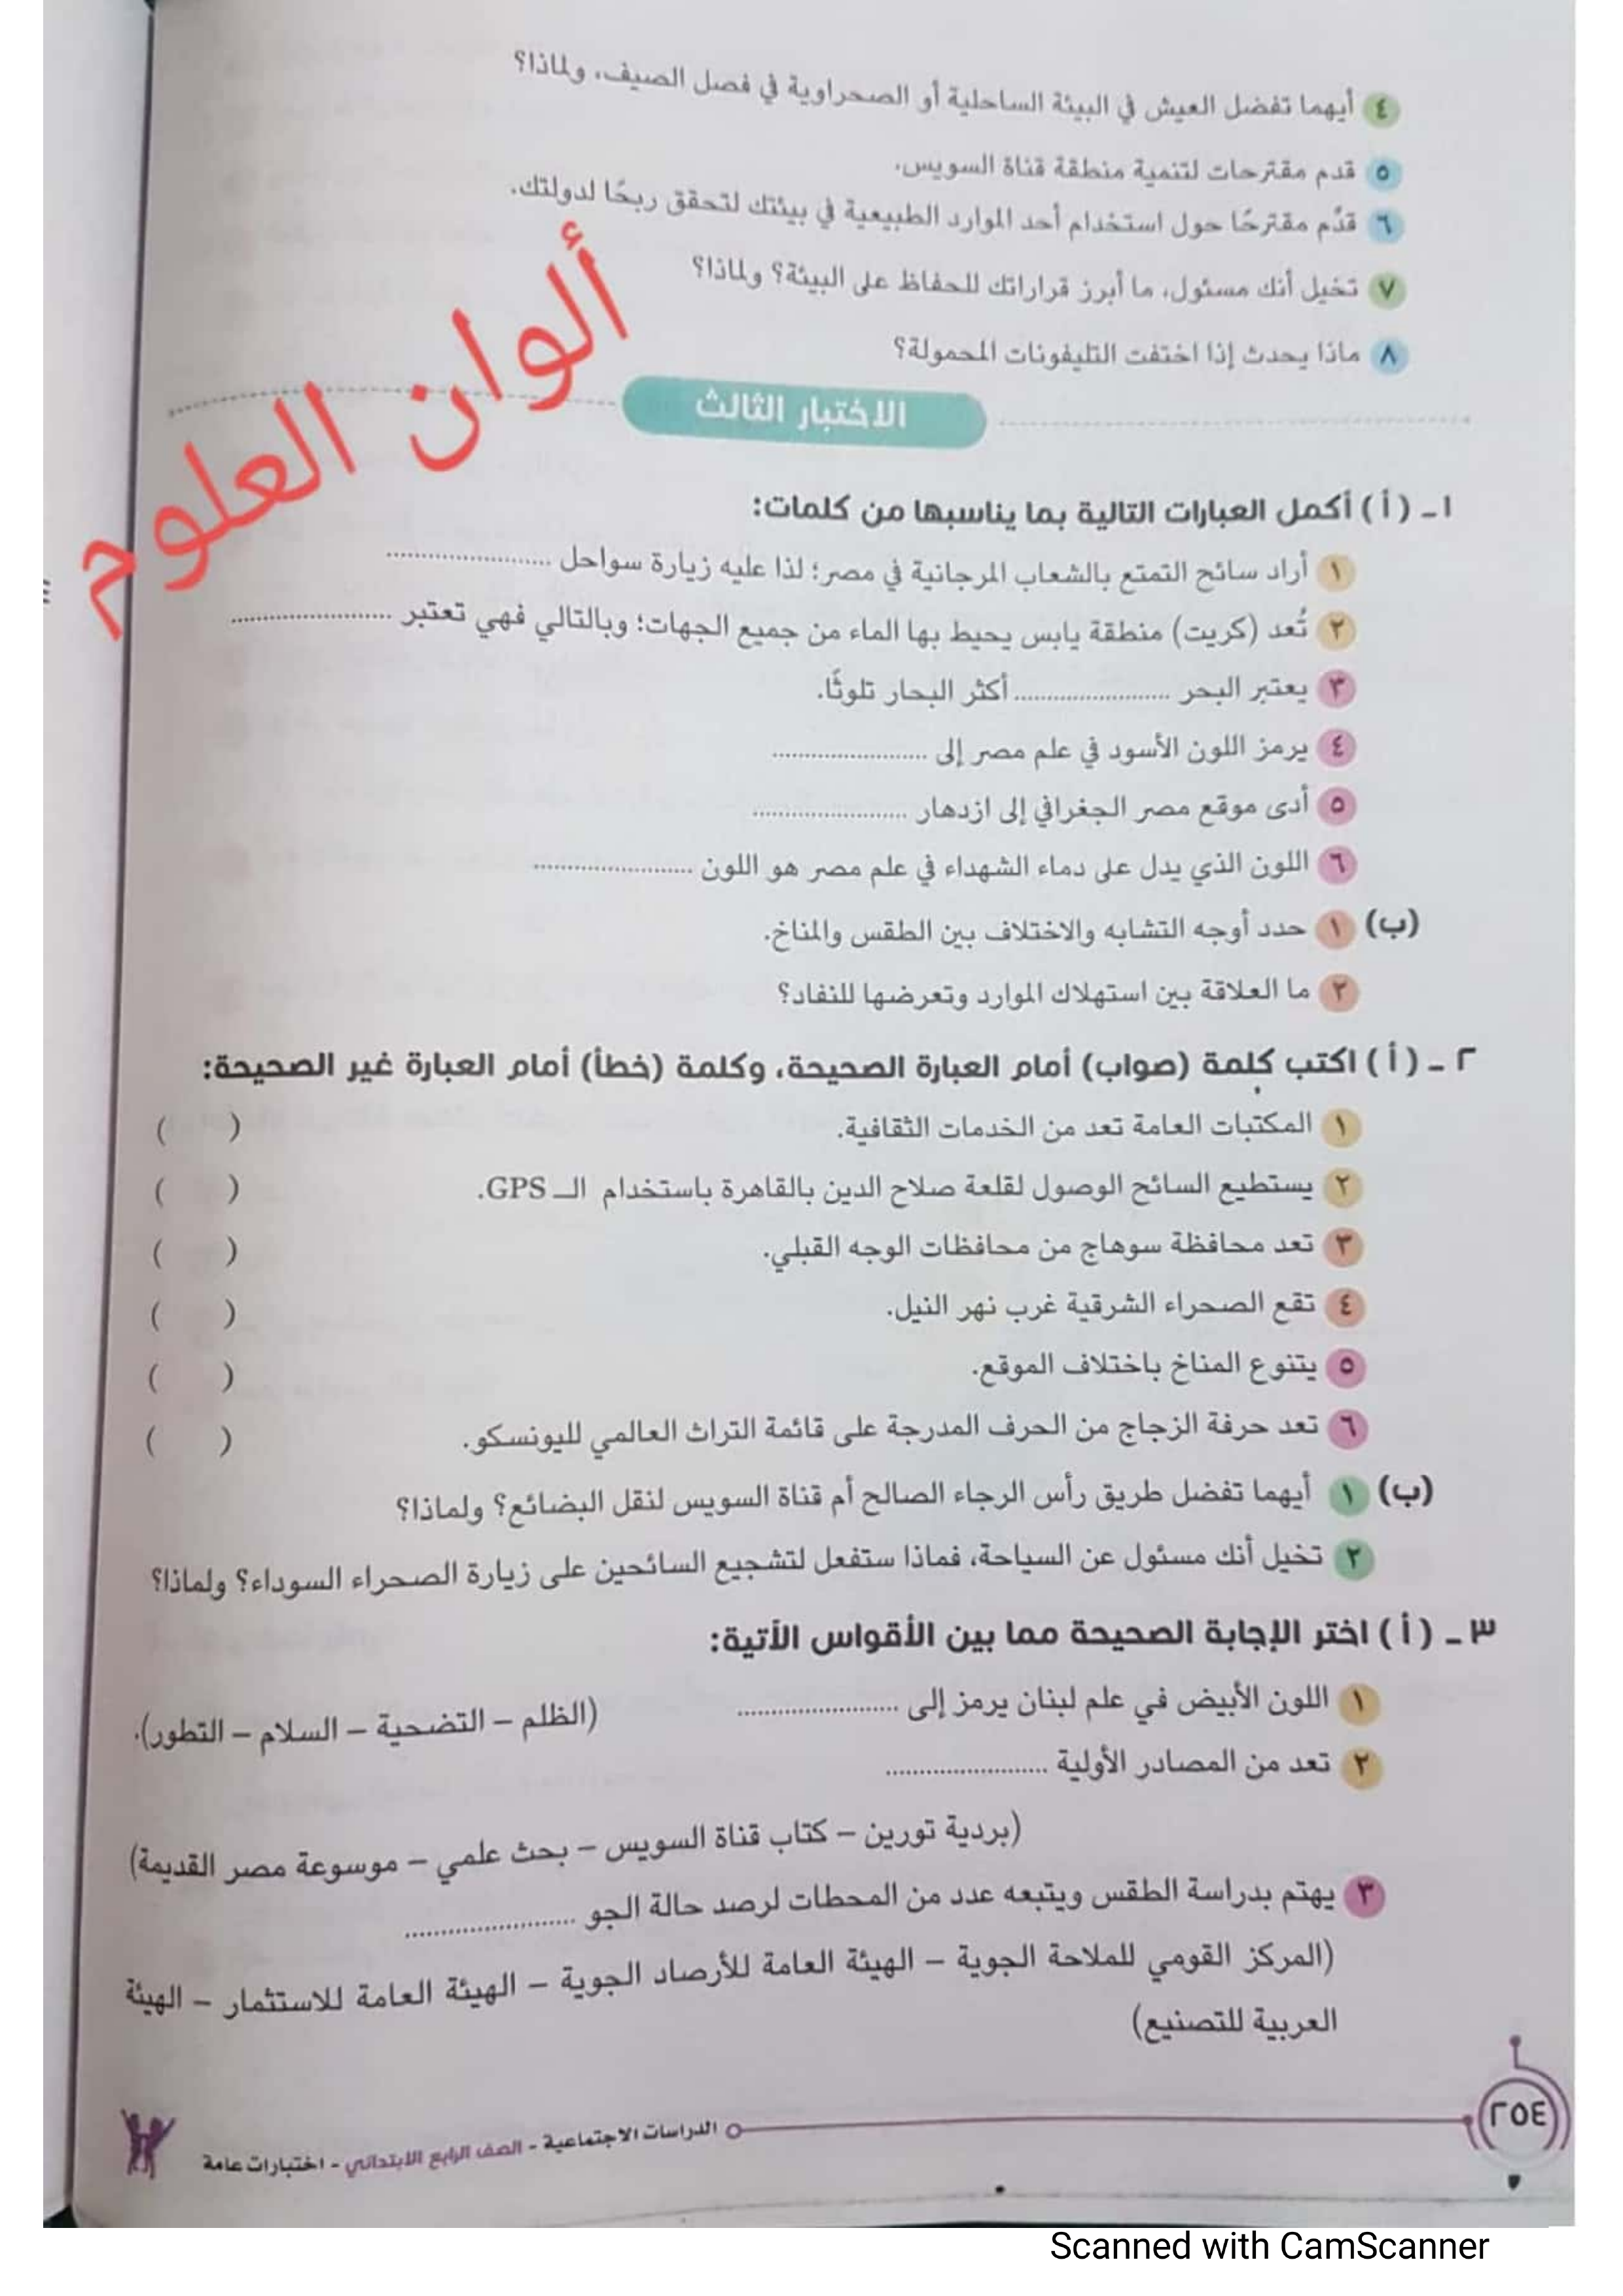 ٤ أيهما تفضل العيش في البيئة الساحلية أو الصحراوية في فصل الصيف، ولماذا؟
٥ قدم مقترحات لتنمية منطقة قناة السويس.
٦ قدِّم مقترحًا حول استخدام أحد الموارد الطبيعية في بيئتك لتحقق ربحًا لدولتك.
٧ تخيل أنك مسئول، ما أبرز قراراتك للحفاظ على البيئة؟ ولماذا؟
٨ ماذا يحدث إذا اختفت التليفونات المحمولة؟
ألوان العلوم
الاختبار الثالث
١ ـ ( أ ) أكمل العبارات التالية بما يناسبها من كلمات:
١ أراد سائح التمتع بالشعاب المرجانية في مصر؛ لذا عليه زيارة سواحل ........................
٢ تُعد (كريت) منطقة يابس يحيط بها الماء من جميع الجهات؛ وبالتالي فهي تعتبر ........................
٣ يعتبر البحر ........................ أكثر البحار تلوثًا.
٤ يرمز اللون الأسود في علم مصر إلى ........................
٥ أدى موقع مصر الجغرافي إلى ازدهار ........................
٦ اللون الذي يدل على دماء الشهداء في علم مصر هو اللون ........................
(ب) ١ حدد أوجه التشابه والاختلاف بين الطقس والمناخ.
٢ ما العلاقة بين استهلاك الموارد وتعرضها للنفاد؟
٢ ـ ( أ ) اكتب كلمة (صواب) أمام العبارة الصحيحة، وكلمة (خطأ) أمام العبارة غير الصحيحة:
١ المكتبات العامة تعد من الخدمات الثقافية. ( )
٢ يستطيع السائح الوصول لقلعة صلاح الدين بالقاهرة باستخدام الـ GPS. ( )
٣ تعد محافظة سوهاج من محافظات الوجه القبلي. ( )
٤ تقع الصحراء الشرقية غرب نهر النيل. ( )
٥ يتنوع المناخ باختلاف الموقع. ( )
٦ تعد حرفة الزجاج من الحرف المدرجة على قائمة التراث العالمي لليونسكو. ( )
(ب) ١ أيهما تفضل طريق رأس الرجاء الصالح أم قناة السويس لنقل البضائع؟ ولماذا؟
٢ تخيل أنك مسئول عن السياحة، فماذا ستفعل لتشجيع السائحين على زيارة الصحراء السوداء؟ ولماذا؟
٣ ـ ( أ ) اختر الإجابة الصحيحة مما بين الأقواس الآتية:
١ اللون الأبيض في علم لبنان يرمز إلى ........................ (الظلم – التضحية – السلام – التطور).
٢ تعد من المصادر الأولية ........................
(بردية تورين – كتاب قناة السويس – بحث علمي – موسوعة مصر القديمة)
٣ يهتم بدراسة الطقس ويتبعه عدد من المحطات لرصد حالة الجو ........................
(المركز القومي للملاحة الجوية – الهيئة العامة للأرصاد الجوية – الهيئة العامة للاستثمار – الهيئة
العربية للتصنيع)
٢٥٤
الدراسات الاجتماعية - الصف الرابع الابتدائي - اختبارات عامة
Scanned with CamScanner